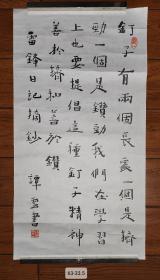 釘子有兩個長處一個是擠
勁一個是鑽勁我們在學習
上也要提倡這種釘子精神
善於擠和善於鑽
雷鋒日記摘鈔 譚書
63-33.5